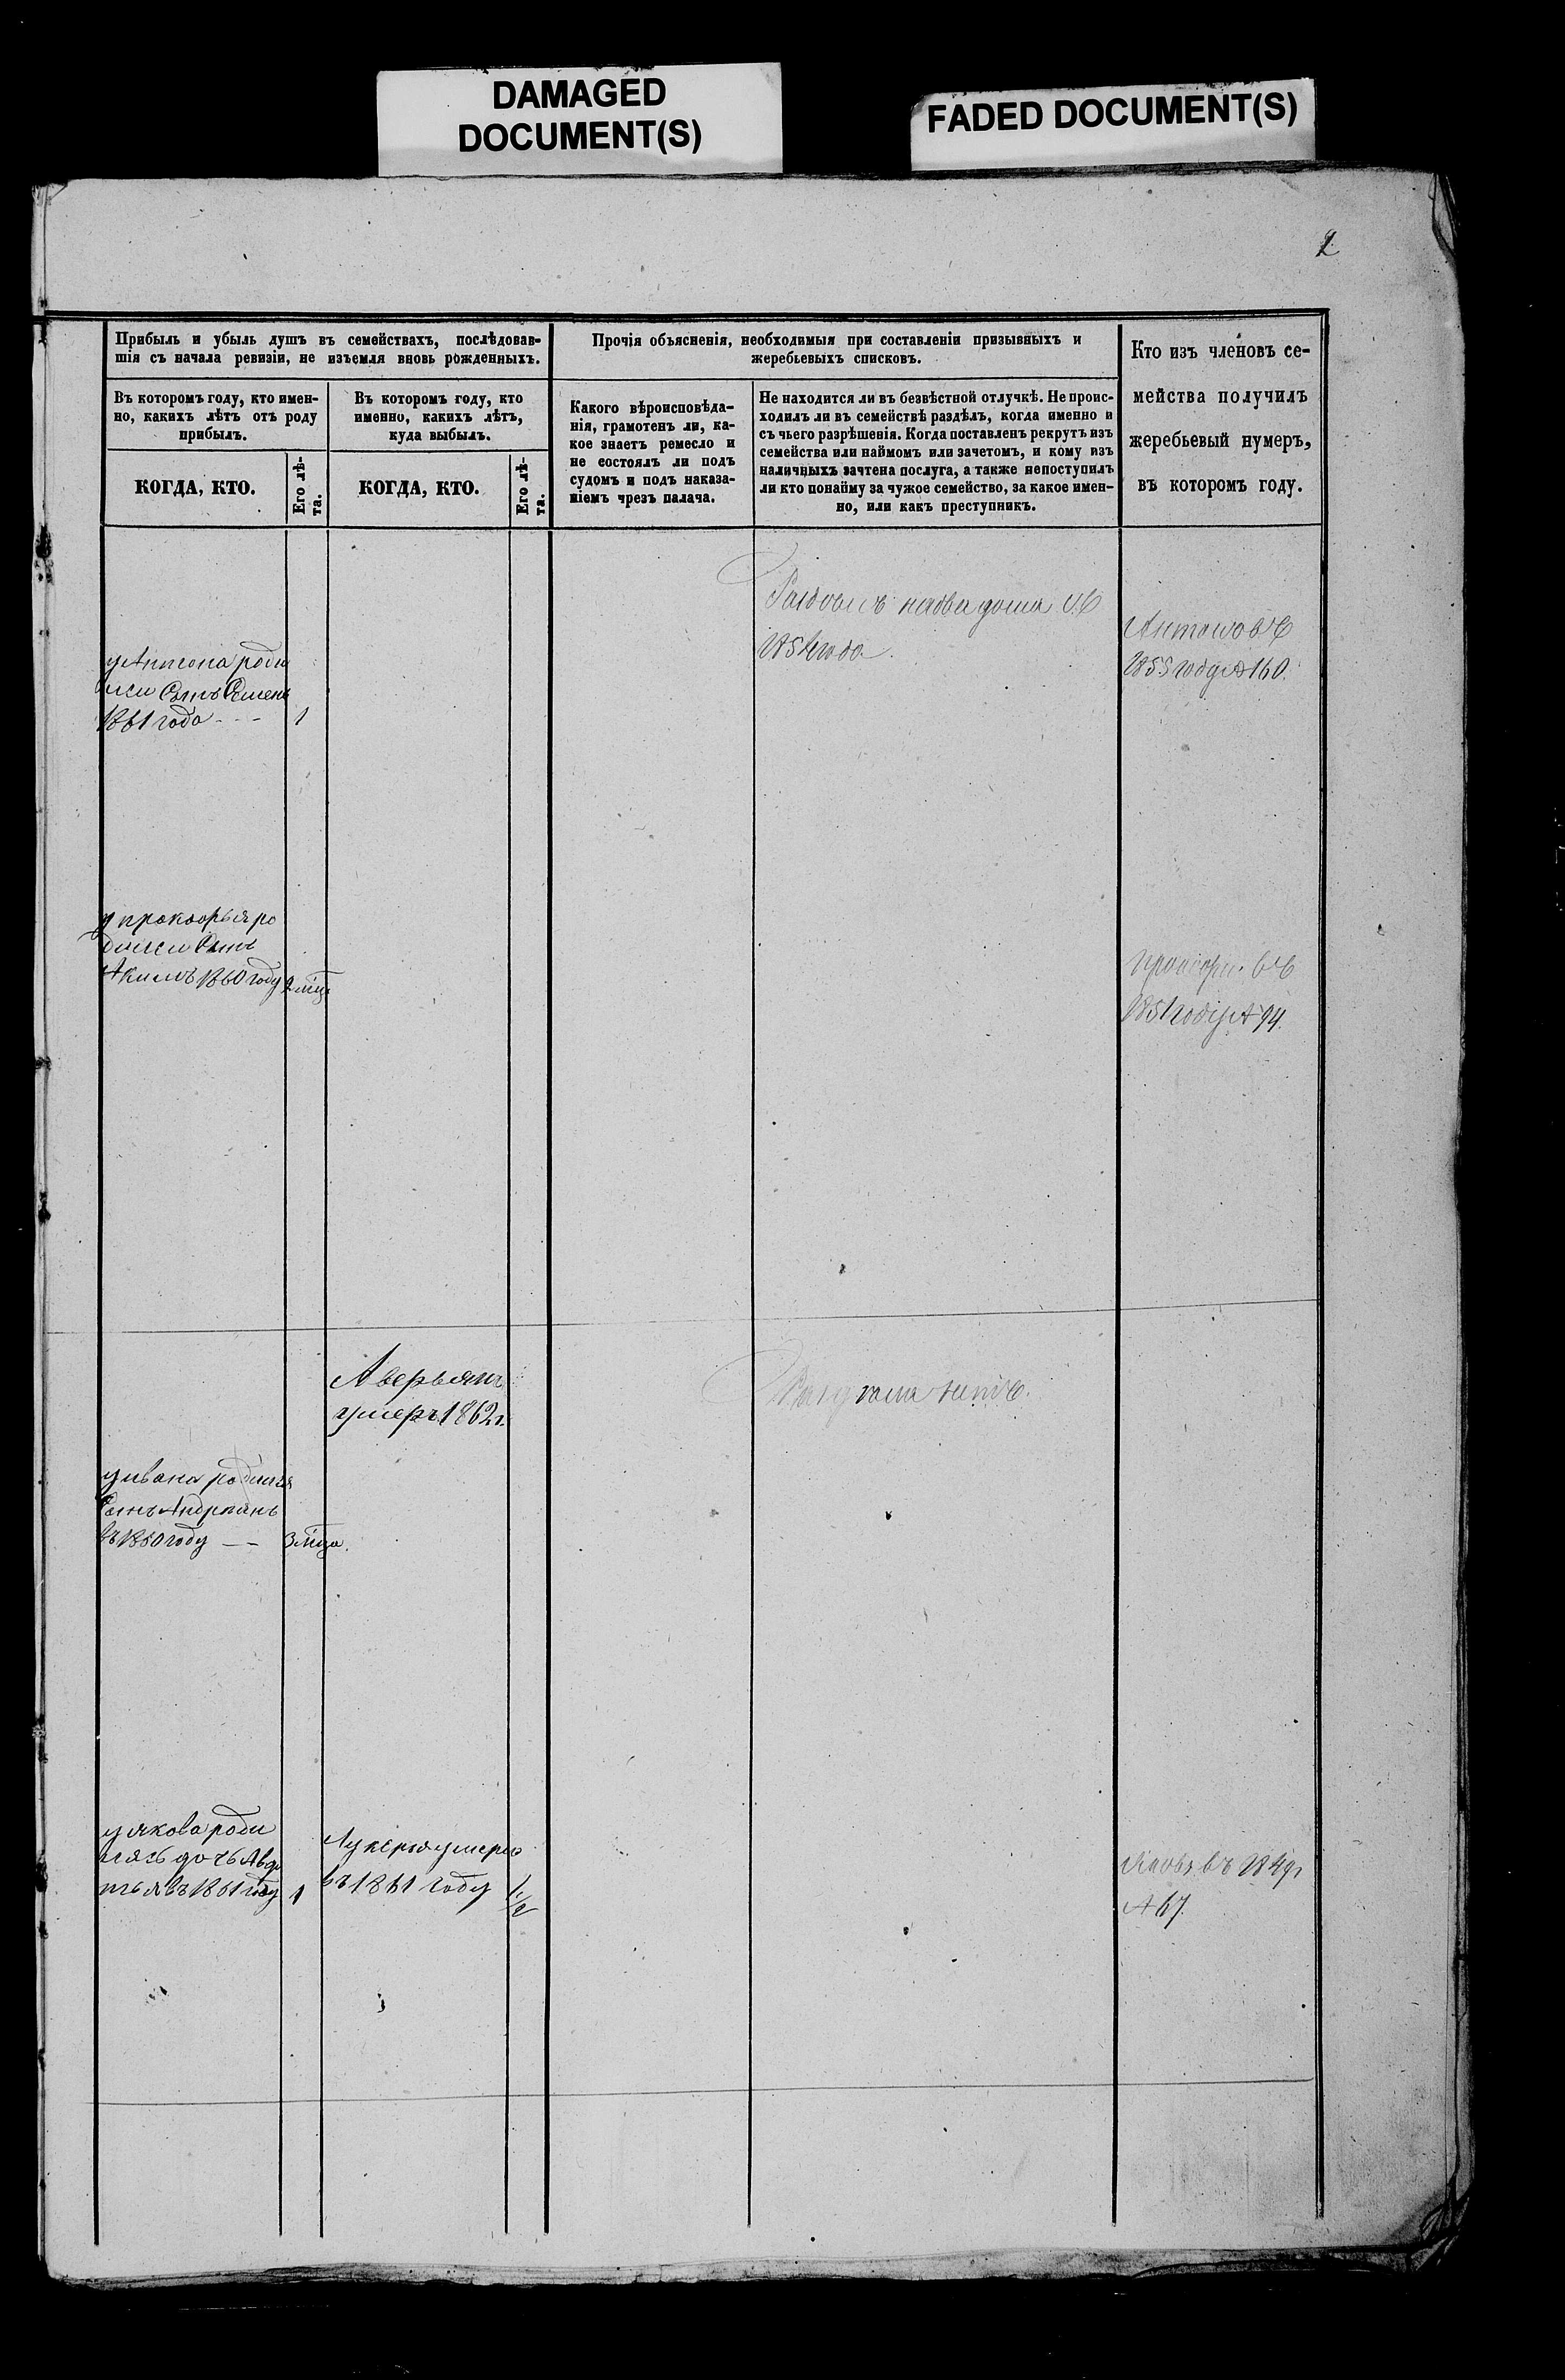 DAMAGED
DOCUMENT(S)
FADED DOCUMENT(S)
2
Прибыль и убыль душъ въ семействахъ, послѣдовав-
шія съ начала ревизіи, не изъемля вновь рожденныхъ.
Въ которомъ году, кто имен-
но, какихъ лѣтъ отъ роду
прибылъ.
КОГДА, КТО.
Его лѣ-
та.
Въ которомъ году, кто
именно, какихъ лѣтъ,
куда выбылъ.
КОГДА, КТО.
Его лѣ-
та.
Прочія объясненія, необходимыя при составленіи призывныхъ и
жеребьевыхъ списковъ.
Какого вѣроисповѣда-
нія, грамотенъ ли, ка-
кое знаетъ ремесло и
не состоялъ ли подъ
судомъ и подъ наказа-
ніемъ чрезъ палача.
Не находится ли въ безвѣстной отлучкѣ. Не проис-
ходилъ ли въ семействѣ раздѣлъ, когда именно и
съ чьего разрѣшенія. Когда поставленъ рекрутъ изъ
семейства или наймомъ или зачетомъ, и кому изъ
наличныхъ зачтена послуга, а также непоступилъ
ли кто понайму за чужое семейство, за какое имен-
но, или какъ преступникъ.
Кто изъ членовъ се-
мейства получилъ
жеребьевый нумеръ,
въ которомъ году.
на два дома
года
Антонъ въ
1855 году № 160.
у Антона роди
лси Сынъ Семенъ
1861 года - - - 1
у прокофья ро
дилси Сынъ
Акимъ 1860 году 2 мѣц
въ
1851 году № 94.
Аверьянъ
умеръ 1862 г.
Раздела нетъ.
у ивана родился
Сынъ Андреянъ
въ 1860 году — — 3 мѣца.
у якова роди
лясь дочь Авдо
тья въ 1861 году 1
Лукерья умерла
въ 1861 году 1/2
Яковъ въ 1849 г
№ 67.